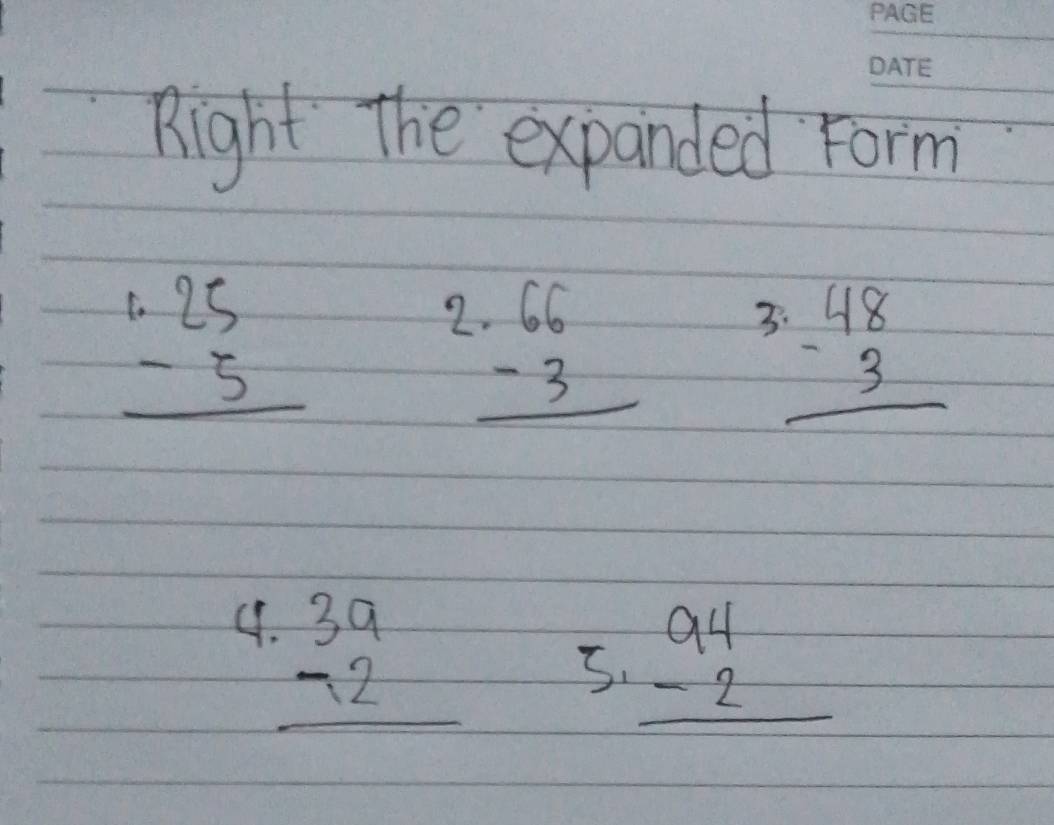 PAGE
DATE
Right The expanded Form
1. 25 2. 66 3. 48
- 5 - 3 - 3
4. 39 94
- 2 5. - 2